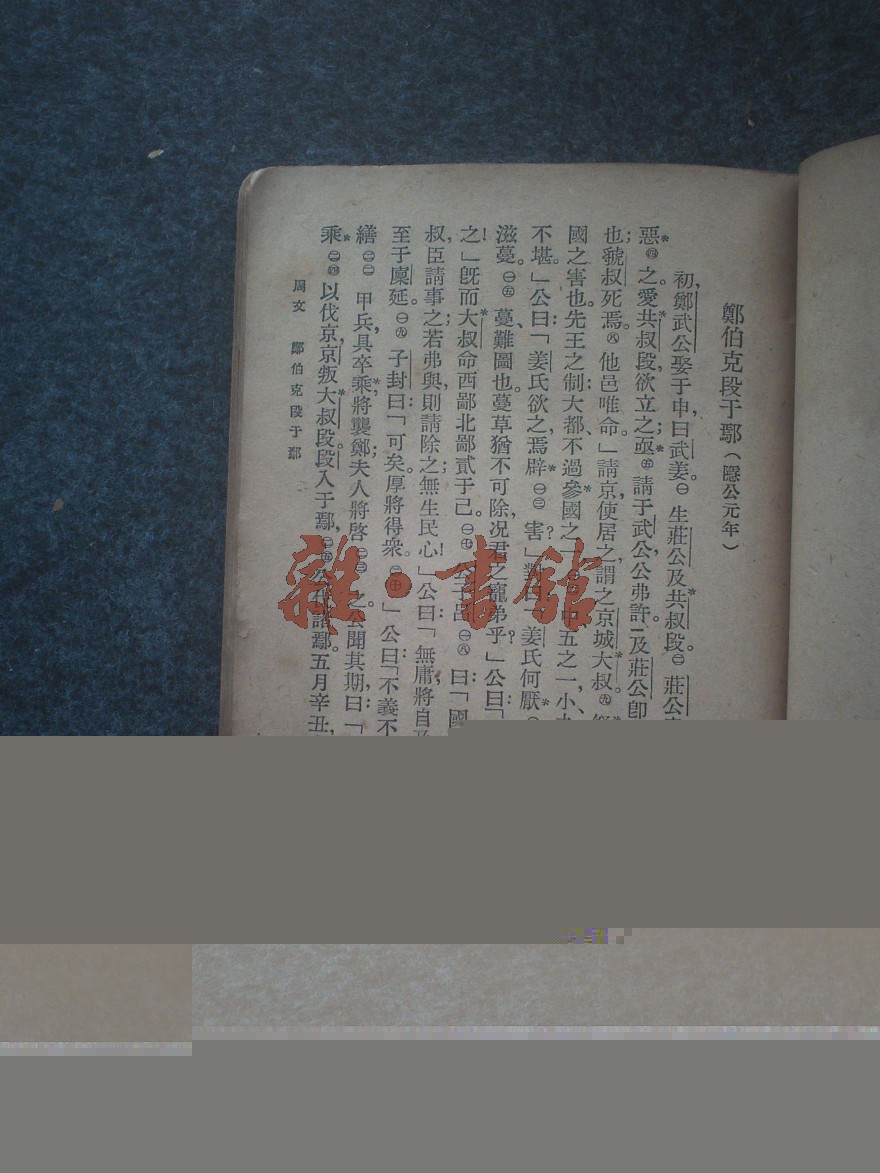 鄭伯克段于鄢（隱公元年）
初，鄭武公娶于申，曰武姜。㊀生莊公及共*叔段。㊁莊公
惡*㊃之。愛共*叔段，欲立之；亟*㊄請于武公，公弗許；及莊公卽
也；虢叔死焉。㊇他邑唯命」請京，使居之，謂之京城大*叔。㊈
國之害也。先王之制：大都不過參*國之一；中、五之一；小、
不堪。」公曰：「姜氏欲之，焉辟*㊀㊂害？」對曰：「姜氏何厭*
滋蔓。㊀㊄蔓、難圖也。蔓草猶不可除，况君之寵弟乎？」公曰：「
之！」旣而大*叔命西鄙北鄙貳于己。㊀㊆公子呂㊀㊇曰：「國
叔，臣請事之；若弗與，則請除之；無生民心！」公曰：「無庸，將自及
至于廩延。㊀㊈子封曰：「可矣。厚將得衆。㊁㊉」公曰：「不義不
繕㊁㊁甲兵，具卒乘*，將襲鄭；夫人將啓㊁㊂之。公聞其期，曰：「
乘*㊁㊃以伐京。京叛大*叔段。段入于鄢，㊁㊄公伐諸鄢。五月辛丑，
周文　鄭伯克段于鄢
雜·書館